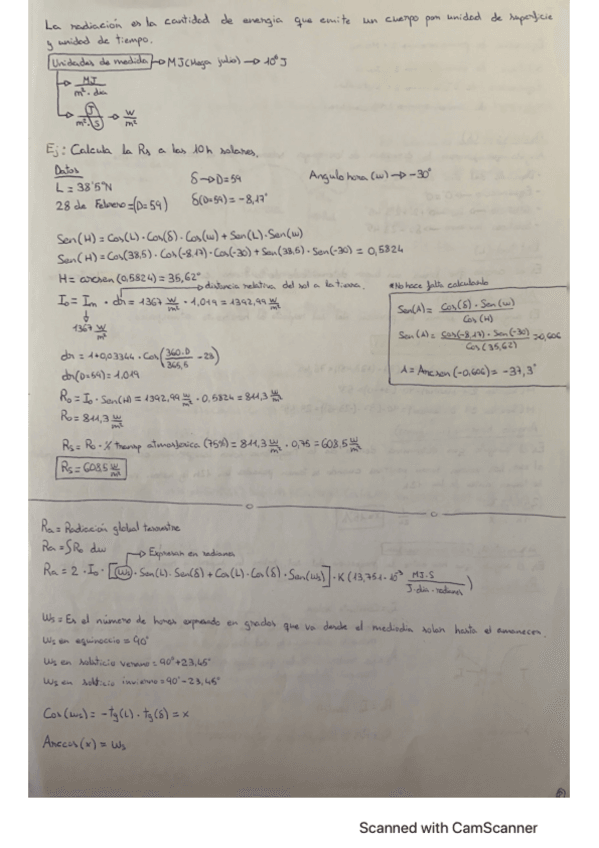 La radiación es la cantidad de energia que emite un cuerpo por unidad de superficie
y unidad de tiempo.
Unidades de medida → MJ (Mega julio) → 10⁶ J
→ MJ / m²·dia
→ J / m²·s → W / m²
Ej: Calcula la Rs a las 10h solares.
Datos
L = 38'5°N
δ → D=59
Angulo hora (w) → -30°
28 de Febrero = (D=59)
δ(D=59) = -8,17°
Sen(H) = Cos(L) · Cos(δ) · Cos(w) + Sen(L) · Sen(w)
Sen(H) = Cos(38,5) · Cos(-8,17) · Cos(-30) + Sen(38,5) · Sen(-30) = 0,5824
H = arcsen(0,5824) = 35,62°
→ distancia relativa del sol a la tierra.
I₀ = Im · dr = 1367 W/m² · 1,019 = 1392,99 W/m²
1367 W/m²
dr = 1+0,03344 · Cos(360·D/365,5 - 28)
dr(D=59) = 1.019
R₀ = I₀ · Sen(H) = 1392,99 W/m² · 0,5824 = 811,3 W/m²
R₀ = 811,3 W/m²
Rs = R₀ · % transp atmosferica (75%) = 811,3 W/m² · 0,75 = 608.5 W/m²
Rs = 608.5 W/m²
*No hace falta calcularlo
Sen(A) = Cos(δ) · Sen(w) / Cos(H)
Sen(A) = Cos(-8,17) · Sen(-30) / Cos(35,62) = 0,606
A = Arcsen(-0,606) = -37,3°
Ra = Radiación global terrestre
Ra = ∫R₀ dw
→ Expresar en radianes
Ra = 2 · I₀ · [(ws) · Sen(L) · Sen(δ) + Cos(L) · Cos(δ) · Sen(ws)] · K (13,751 · 10⁻³ MJ·S / J·dia·radianes)
Ws = Es el número de horas expresado en grados que va desde el mediodia solar hasta el amanecer.
Ws en equinoccio = 90°
Ws en solsticio verano = 90° + 23,45°
Ws en solsticio invierno = 90° - 23,45°
Cos(ws) = -tg(L) · tg(δ) = x
Arccos(x) = Ws
Scanned with CamScanner